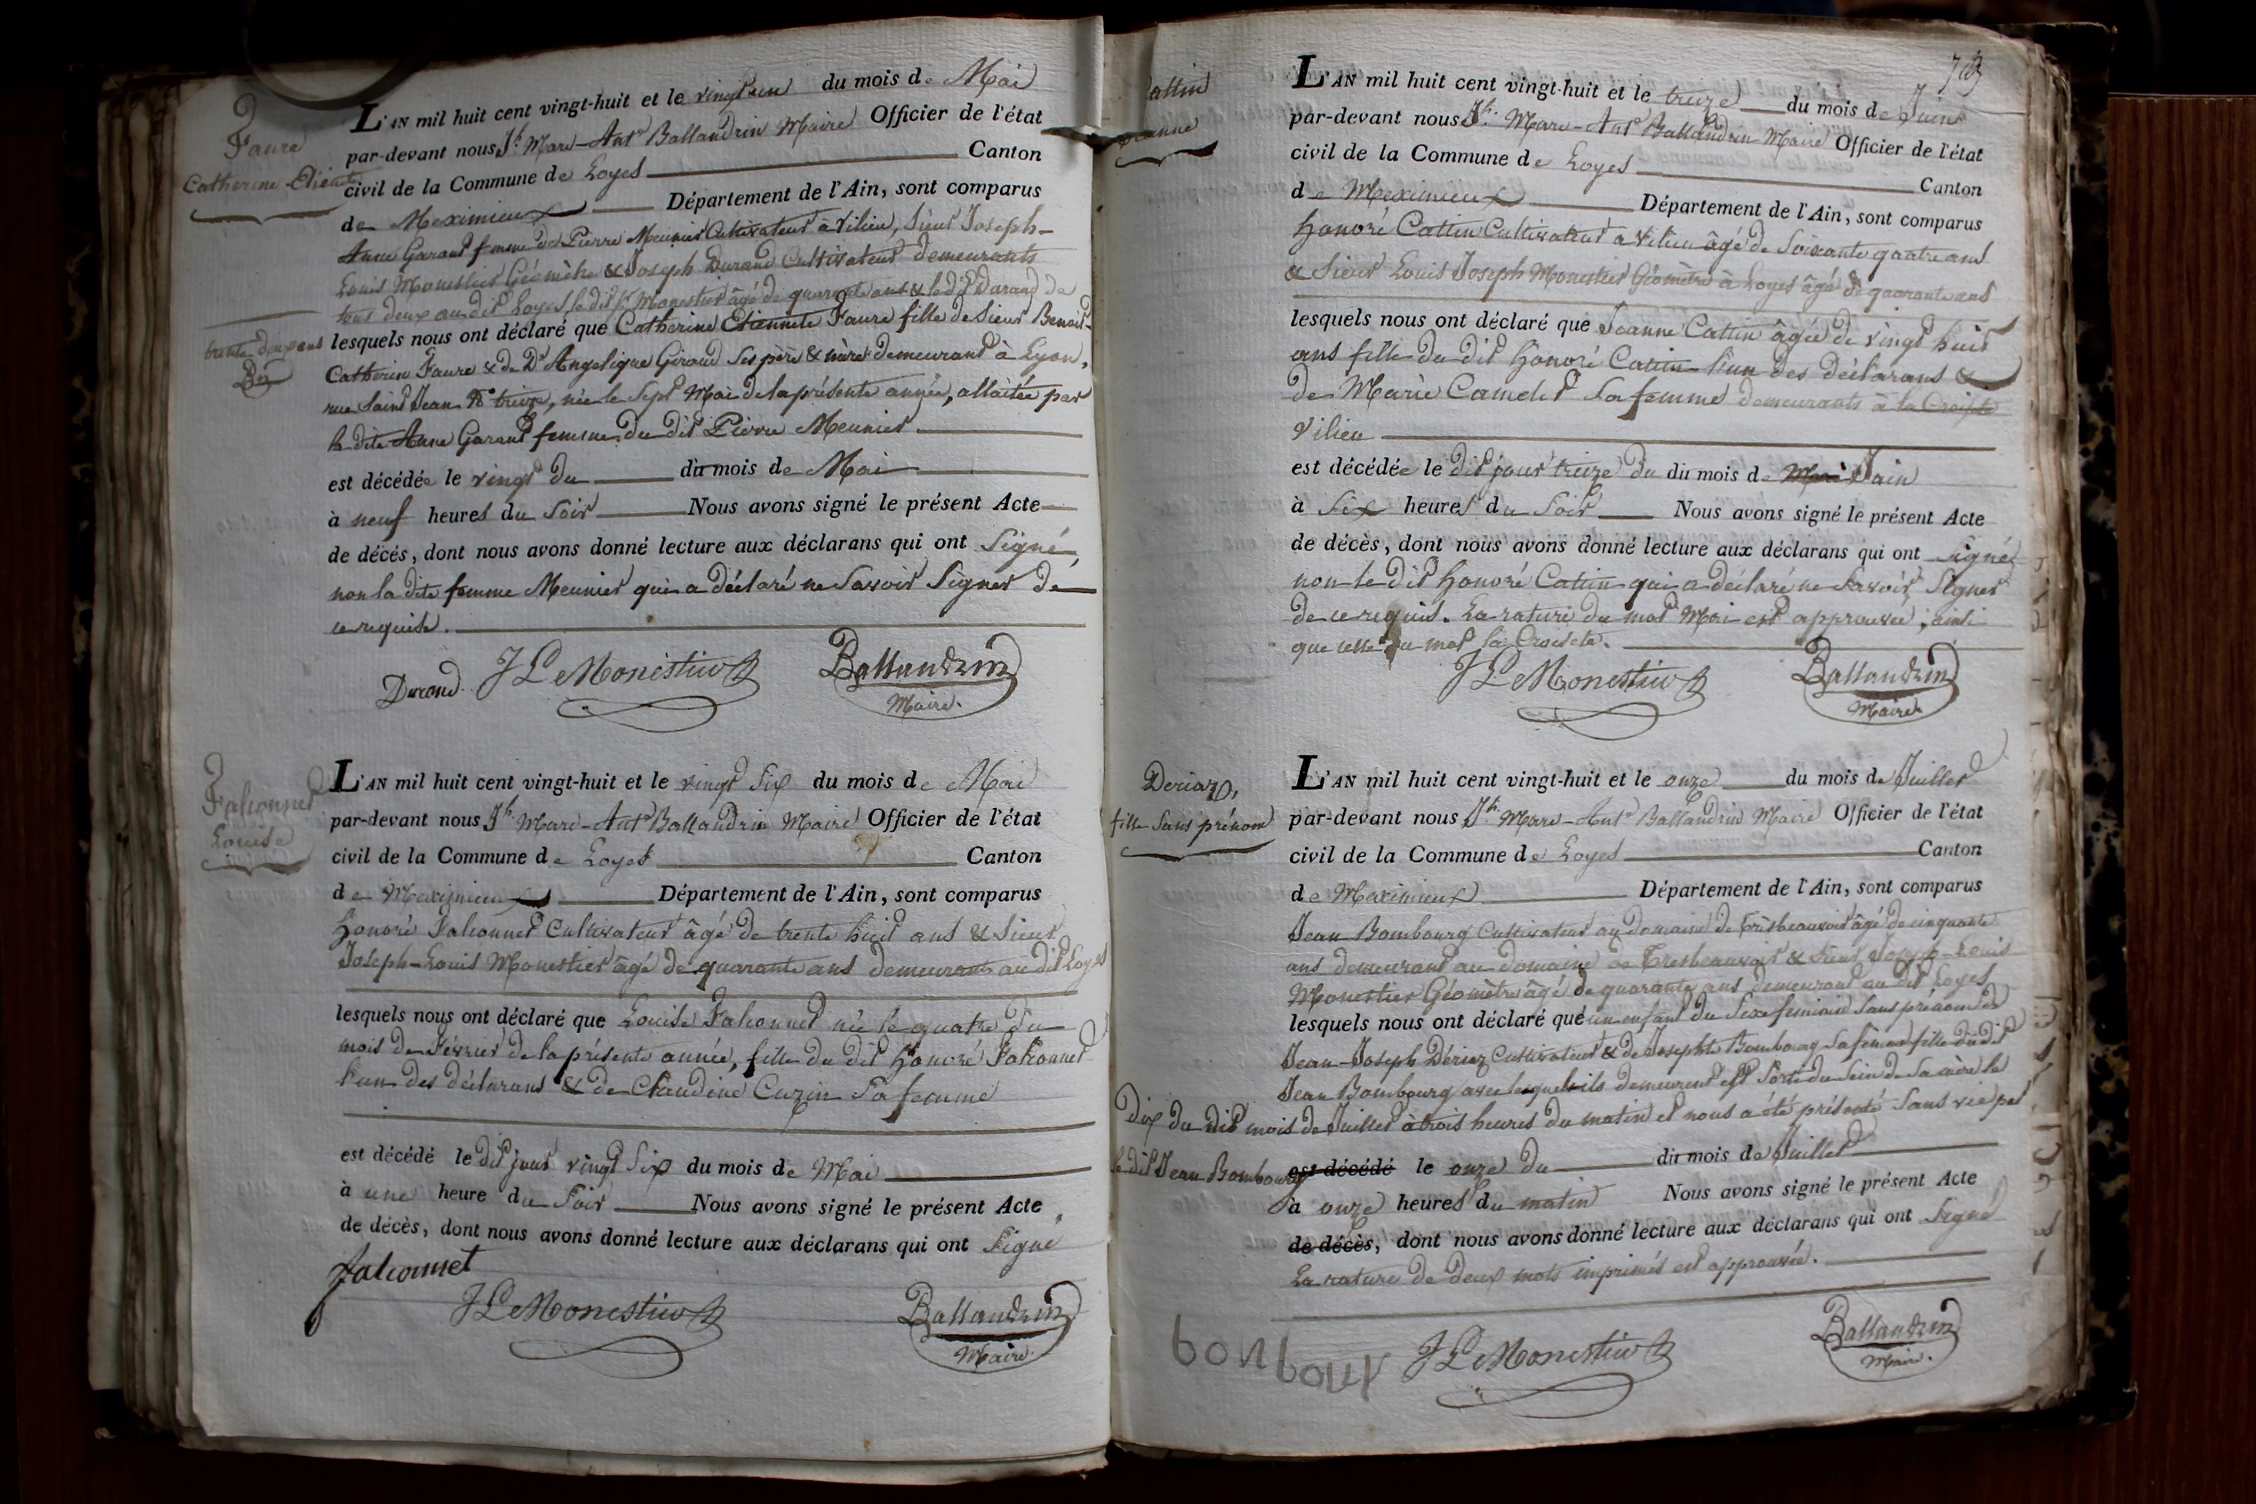 Faure
Catherine Etiennete
L'AN mil huit cent vingt-huit et le vingt un du mois de Mai
par-devant nous Jh Marc-Ant Ballandrin Maire Officier de l'état
civil de la Commune de Loyes Canton
de Meximieux Département de l'Ain, sont comparus
Anne Garant femme de Pierre Meunier Cultivateur à Vilieu, Sieur Joseph-
Louis Monestier Géomètre & Joseph Durand Cultivateur demeurants
tous deux au dit Loyes, le dit Sr Monestier âgé de quarante ans & le dit Durand de
trente deux ans
lesquels nous ont déclaré que Catherine Etiennete Faure fille de Sieur Benoit-
Catherin Faure & de De Angelique Giroud Ses père & mère demeurant à Lyon,
rue Saint Jean No treize, née le Sept Mai de la présente année, allaitée par
la dite Anne Garant femme du dit Pierre Meunier
est décédée le vingt du dit mois de Mai
à neuf heures du Soir Nous avons signé le présent Acte
de décès, dont nous avons donné lecture aux déclarans qui ont Signé
non la dite femme Meunier qui a déclaré ne Savoir Signer de
ce requise.
Durand JLeMonestier Ballandrin
Maire.
Falconnet
Louise
L'AN mil huit cent vingt-huit et le vingt Six du mois de Mai
par-devant nous Jh Marc-Ant Ballandrin Maire Officier de l'état
civil de la Commune de Loyes Canton
de Meximieux Département de l'Ain, sont comparus
Honoré Falconnet Cultivateur âgé de trente huit ans & Sieur
Joseph-Louis Monestier âgé de quarante ans demeurants au dit Loyes
lesquels nous ont déclaré que Louise Falconnet née le quatre du
mois de Février de la présente année, fille du dit Honoré Falconnet
l'un des déclarans & de Claudine Cuzin Sa femme
est décédé le dit jour vingt Six du mois de Mai
à une heure du Soir Nous avons signé le présent Acte
de décès, dont nous avons donné lecture aux déclarans qui ont Signé
falconnet
JLeMonestier Ballandrin
Maire.
Cattin
Jeanne
L'AN mil huit cent vingt-huit et le treize du mois de Juin
par-devant nous Jh Marc-Ant Ballandrin Maire Officier de l'état
civil de la Commune de Loyes Canton
de Meximieux Département de l'Ain, sont comparus
Honoré Cattin Cultivateur à Vilieu âgé de Soixante quatre ans
& Sieur Louis Joseph Monestier Géomètre à Loyes âgé de quarante ans
lesquels nous ont déclaré que Jeanne Cattin âgée de vingt huit
ans fille du dit Honoré Cattin l'un des déclarans &
de Marie Camelet Sa femme demeurants à la Croisete
Vilieu
est décédée le dit jour treize du dit mois de Mai Juin
à Six heures du Soir Nous avons signé le présent Acte
de décès, dont nous avons donné lecture aux déclarans qui ont Signé
non le dit Honoré Cattin qui a déclaré ne Savoir Signer
de ce requis. La rature du mot Mai est approuvée, ainsi
que celle du mot la Croisete.
JLeMonestier Ballandrin
Maire.
Deriaz,
fille Sans prénom
L'AN mil huit cent vingt-huit et le onze du mois de Juillet
par-devant nous Jh Marc-Ant Ballandrin Maire Officier de l'état
civil de la Commune de Loyes Canton
de Meximieux Département de l'Ain, sont comparus
Jean Bombourg Cultivateur au domaine de Trèsbeauvoir âgé de cinquante
ans demeurant au domaine de Tresbeauvoir & Sieur Joseph-Louis
Monestier Géomètre âgé de quarante ans demeurant au dit Loyes
lesquels nous ont déclaré que un enfant du Sexe feminin Sans prénom de
Jean-Joseph Dériaz Cultivateur & de Josephte Bombourg Sa femme fille du dit
Jean Bombourg avec lequel ils demeurent est Sorti du Sein de Sa mère le
dix du dit mois de Juillet à trois heures du matin et nous a été présenté Sans vie par
le dit Jean Bombourg est décédé le onze du dit mois de Juillet
à onze heures du matin Nous avons signé le présent Acte
de décès, dont nous avons donné lecture aux déclarans qui ont Signé
La rature de deux mots imprimés est approuvée.
bonbour JLeMonestier Ballandrin
Maire.